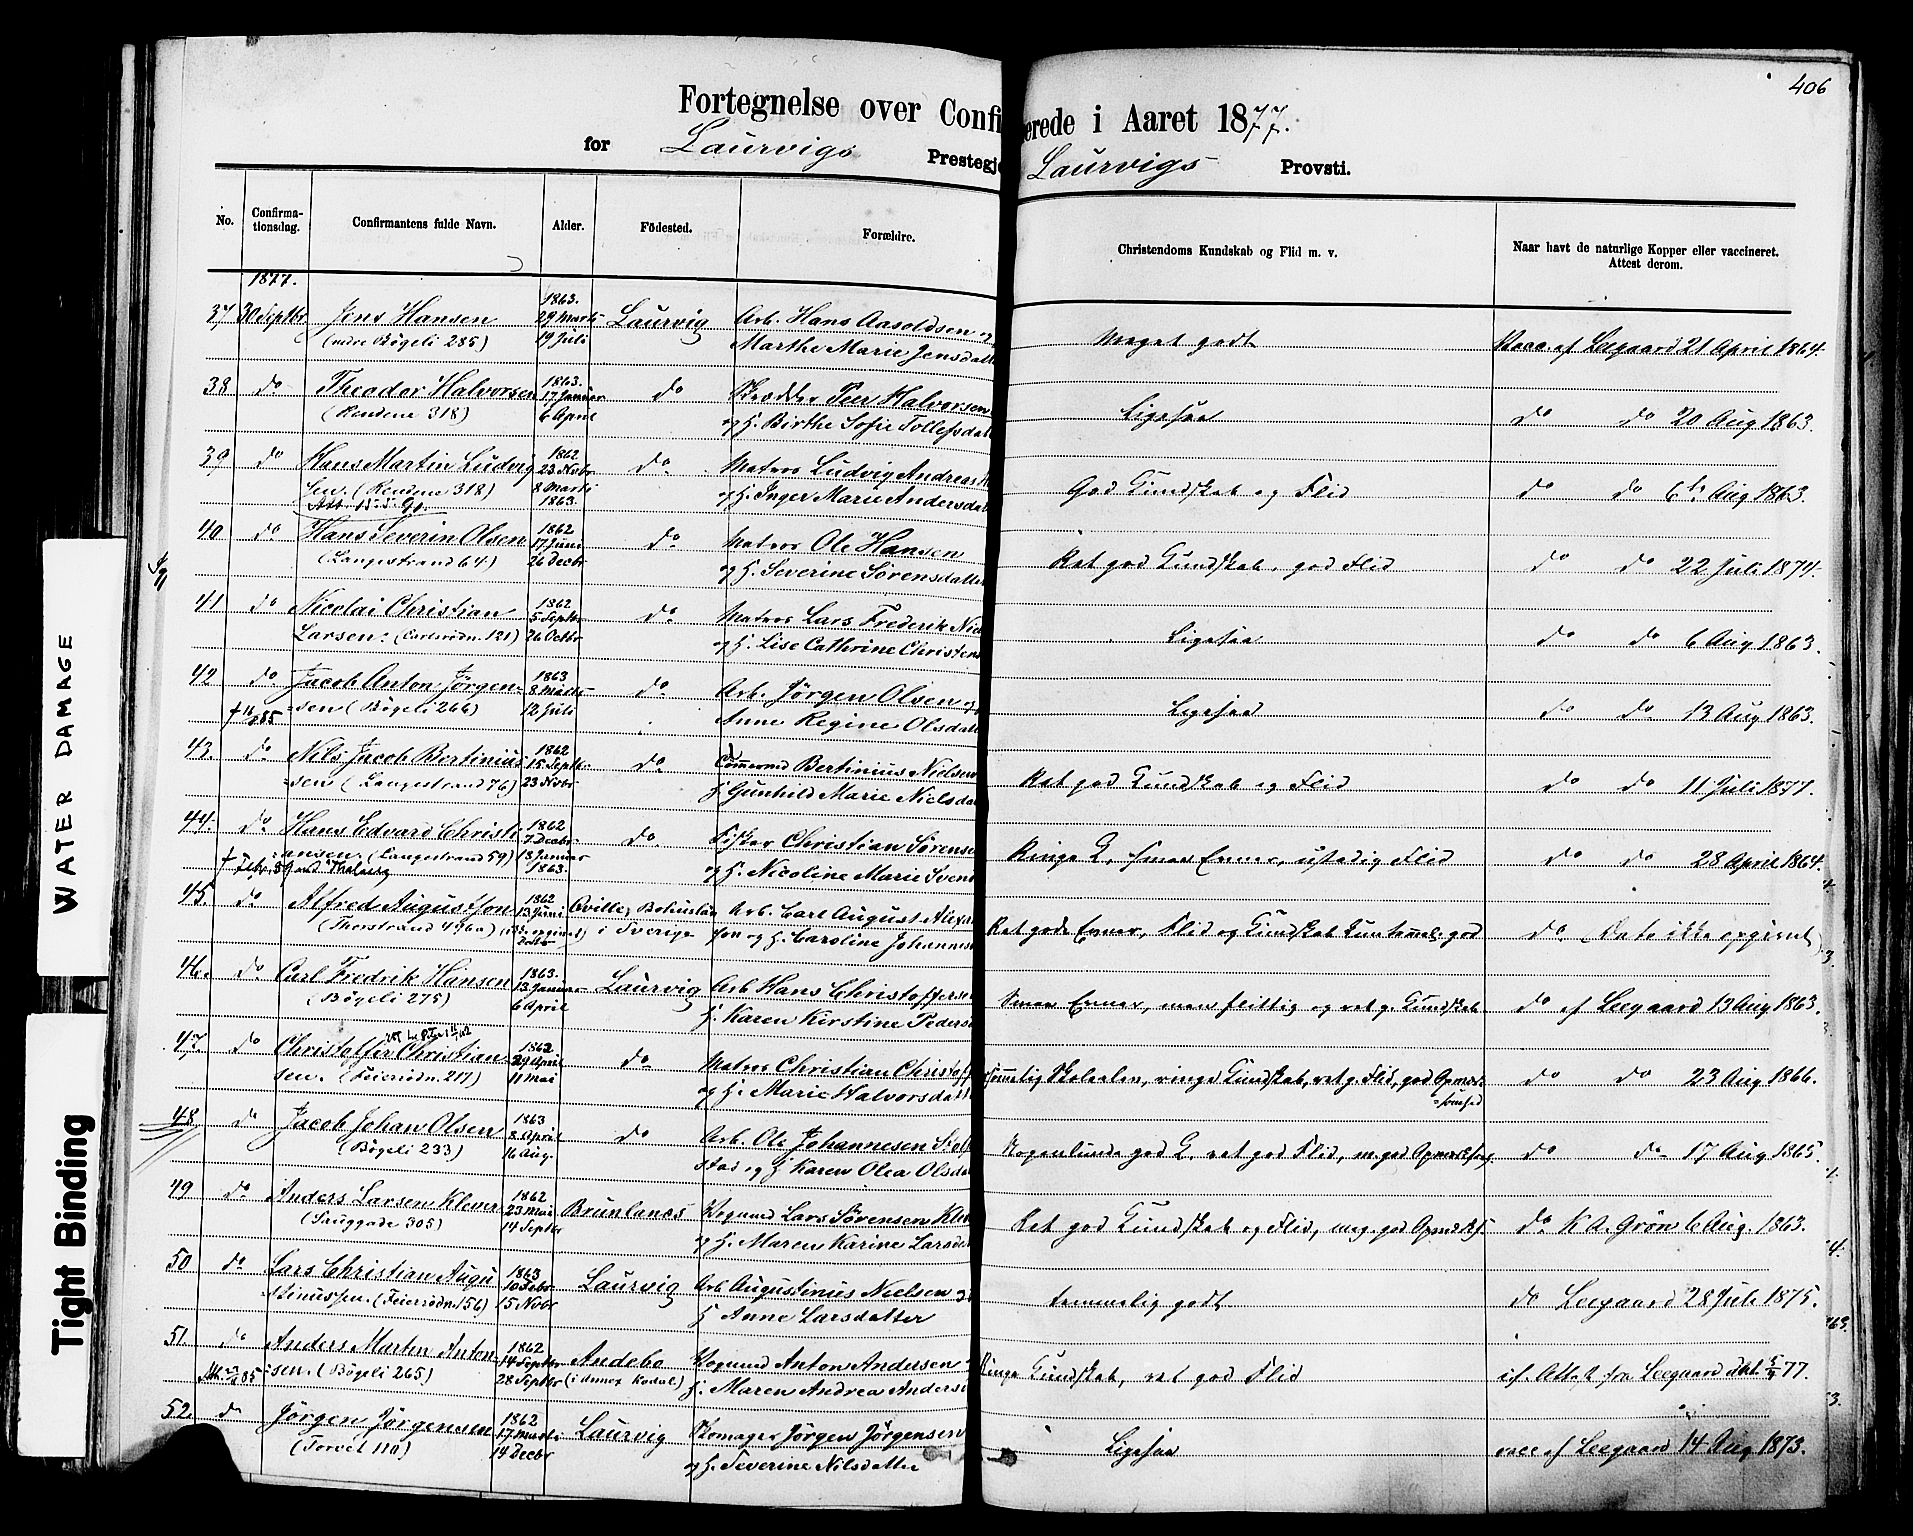 406
Fortegnelse over Confi erede i Aaret 1877.
for Laurvigs Prestegje Laurvigs Provsti.
No. Confirma-tionsdag. Confirmantens fulde Navn. Alder. Födested. Forældre. Christendoms Kundskab og Flid m. v. Naar havt de naturlige Kopper eller vaccineret. Attest derom.
1877.
37 30 Septbr Jens Hansen 1863. 29 Marts Laurvig Arb. Hans Aasoldsen og Meget godt Vacc. af Leegaard 21 April 1864.
(nedre Bögeli 285) 19 Juli Marthe Marie Jensdatt
38 do Theodor Halvorsen 1863. 17 Januar do Skrædder Peer Halvorsen Ligesaa do do 20 Aug 1863.
(Rendene 318) 6 April og H. Birthe Sofie Tollefsdatt
39 do Hans Martin Ludvig 1862 23 Novbr do Matros Ludvig Andreas God Kundskab og Flid do do 6te Aug 1863.
sen. (Rendene 318) 8 Marts 1863. og H. Inger Marie Andersdat
Att. 15-5-91.
40 do Hans Severin Olsen 1862 17 Juni do Matros Ole Hansen Ret god Kundskab, god Flid do do 22 Juli 1874.
(Langestrand 64) 26 Decbr og H. Severine Sörensdatter
41 do Nicolai Christian 1862 5 Septbr do Matros Lars Frederik Niel Ligesaa do do 6 Aug 1863.
Larsen: (Carlsrödn. 121) 26 Octbr og H. Lise Cathrine Christens
42 do Jacob Anton Jörgen- 1863 8 Marts do Arb. Jörgen Olsen og Ligesaa do do 13 Aug 1863.
=sen (Bögeli 266) 12 Juli Anne Regine Olsdatt
43. do Nils Jacob Bertinius 1862 15 Septbr do Tömmermd Bertinius Nielsen Ret god Kundskab og Flid do do 11 Juli 1877.
=sen (Langestrand 76) 23 Novbr H. Gunhild Marie Nielsda
44. do Hans Edvard Christi 1862 7 Decbr do Fisker Christian Sörensen Ringe K, smaa Evner, ustadig Flid do do 28 April 1864.
=ansen. (Langestrand 59) 18 Januar 1863. og H. Nicoline Marie Svend
45. do Alfred Augustson 1862 13 Juni Qville, Bohuslän Arb. Carl August Alexan Ret gode Evner, Flid og Kundskab kun temmel. god do (Dato ikke opgivet)
(Thorstrand 496a) i Sverige son og H. Caroline Johannes
46. do Carl Fredrik Hansen 1863. 13 Januar Laurvig Arb Hans Christoffersen Smaa Evner, men flittig og ret g. Kundskab do af Leegaard 13 Aug 1863.
(Bögeli 275) 6 April H. Karen Kirstine Peders
47. do Christoffer Christian- 1862 29 April do Matros Christian Christoff temmelig Skolealen, ringe Kundskab, ret g. Flid, god Opmærk= =somhed do do 23 Aug 1866.
sen. (Feierisödn. 217) 11 Mai og H. Marie Halvorsdatt
48. do Jacob Johan Olsen 1863 8 April do Arb. Ole Johannesen Nogenlunde god K, ret god Flid, m. god Opmærks. do do 17 Aug 1865.
(Bögeli 233) 16 Aug. stad og H Karen Olea Olsdat
49 do Anders Larsen Klever 1862 23 Mai Brunlanes Vognmd Lars Sörensen Klev Ret god Kundskab og Flid, meg. god Opmærks. do K. A. Grön 6 Aug. 1863.
(305) 14 Septbr og H. Maren Karine Larsdat
50 do Lars Christian Augu 1863 10 Febr Laurvig Arb Augustinus Nielsen og temmelig godt do Leegaard 28 Juli 1875.
=stinussen. (Feierisödn. 156) 15 Novbr H Anne Larsdatter
51. do Anders Martin Anton- 1862 14 Septbr Andebo Vognmd Anton Andersen Ringe Kundskab, ret god Flid if. Attest fra Leegaard
=sen. (Bögeli 265) 28 Septbr (i annex Kodal) H. Maren Andrea Anders
52. do Jörgen Jörgensen 1862 17 Marts Laurvig Skomager Jörgen Jörgensen Ligesaa vacc af Leegaard 14 Aug 1873.
(Torvet 110) 14 Decbr og H. Severine Nilsdatter
WATER DAMAGE
Tight Binding